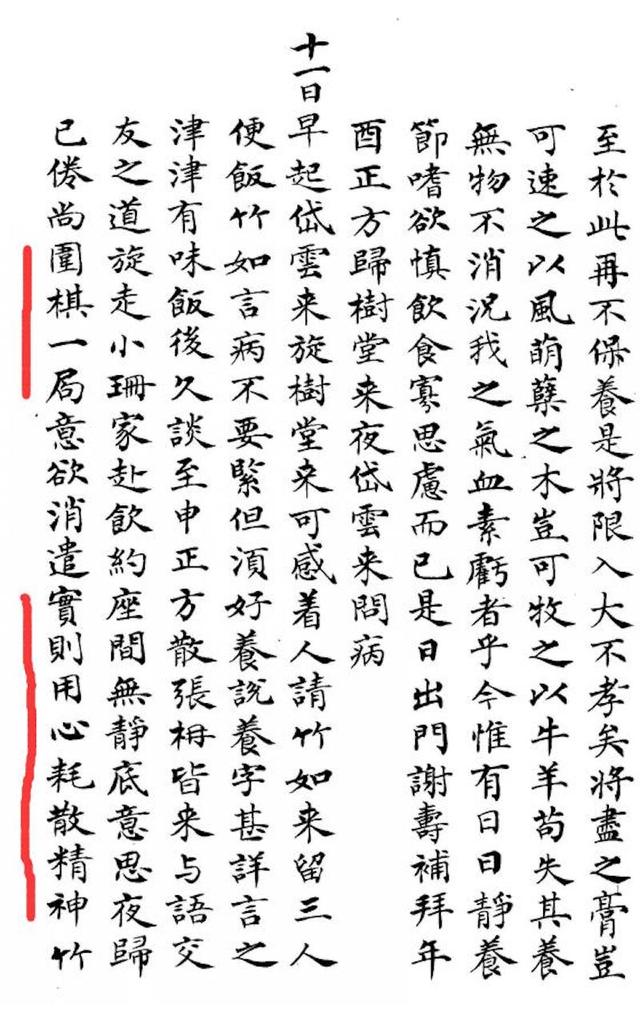 至於此再不保養是將限入大不孝矣將盡之膏豈
可速之以風萌蘖之木豈可牧之以牛羊苟失其養
無物不消況我之氣血素虧者乎今惟有日日靜養
節嗜欲慎飲食寡思慮而已是日出門謝壽補拜年
酉正方歸樹堂来夜岱雲来問病
十一日早起岱雲来旋樹堂来可感着人請竹如来留三人
便飯竹如言病不要緊但須好養說養字甚詳言之
津津有味飯後久談至申正方散張柟皆来与語交
友之道旋走小珊家赴飲約座間無靜底意思夜歸
已倦尚圍棋一局意欲消遣實則用心耗散精神竹